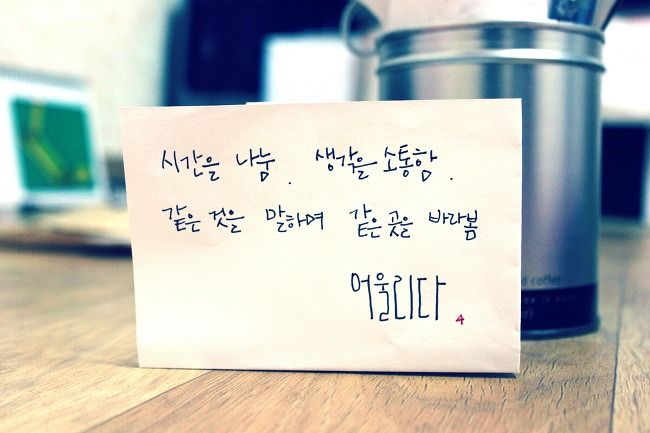 시간을 나눔. 생각을 소통함.
같은 것을 말하며 같은 곳을 바라봄
어울리다
4
coffee